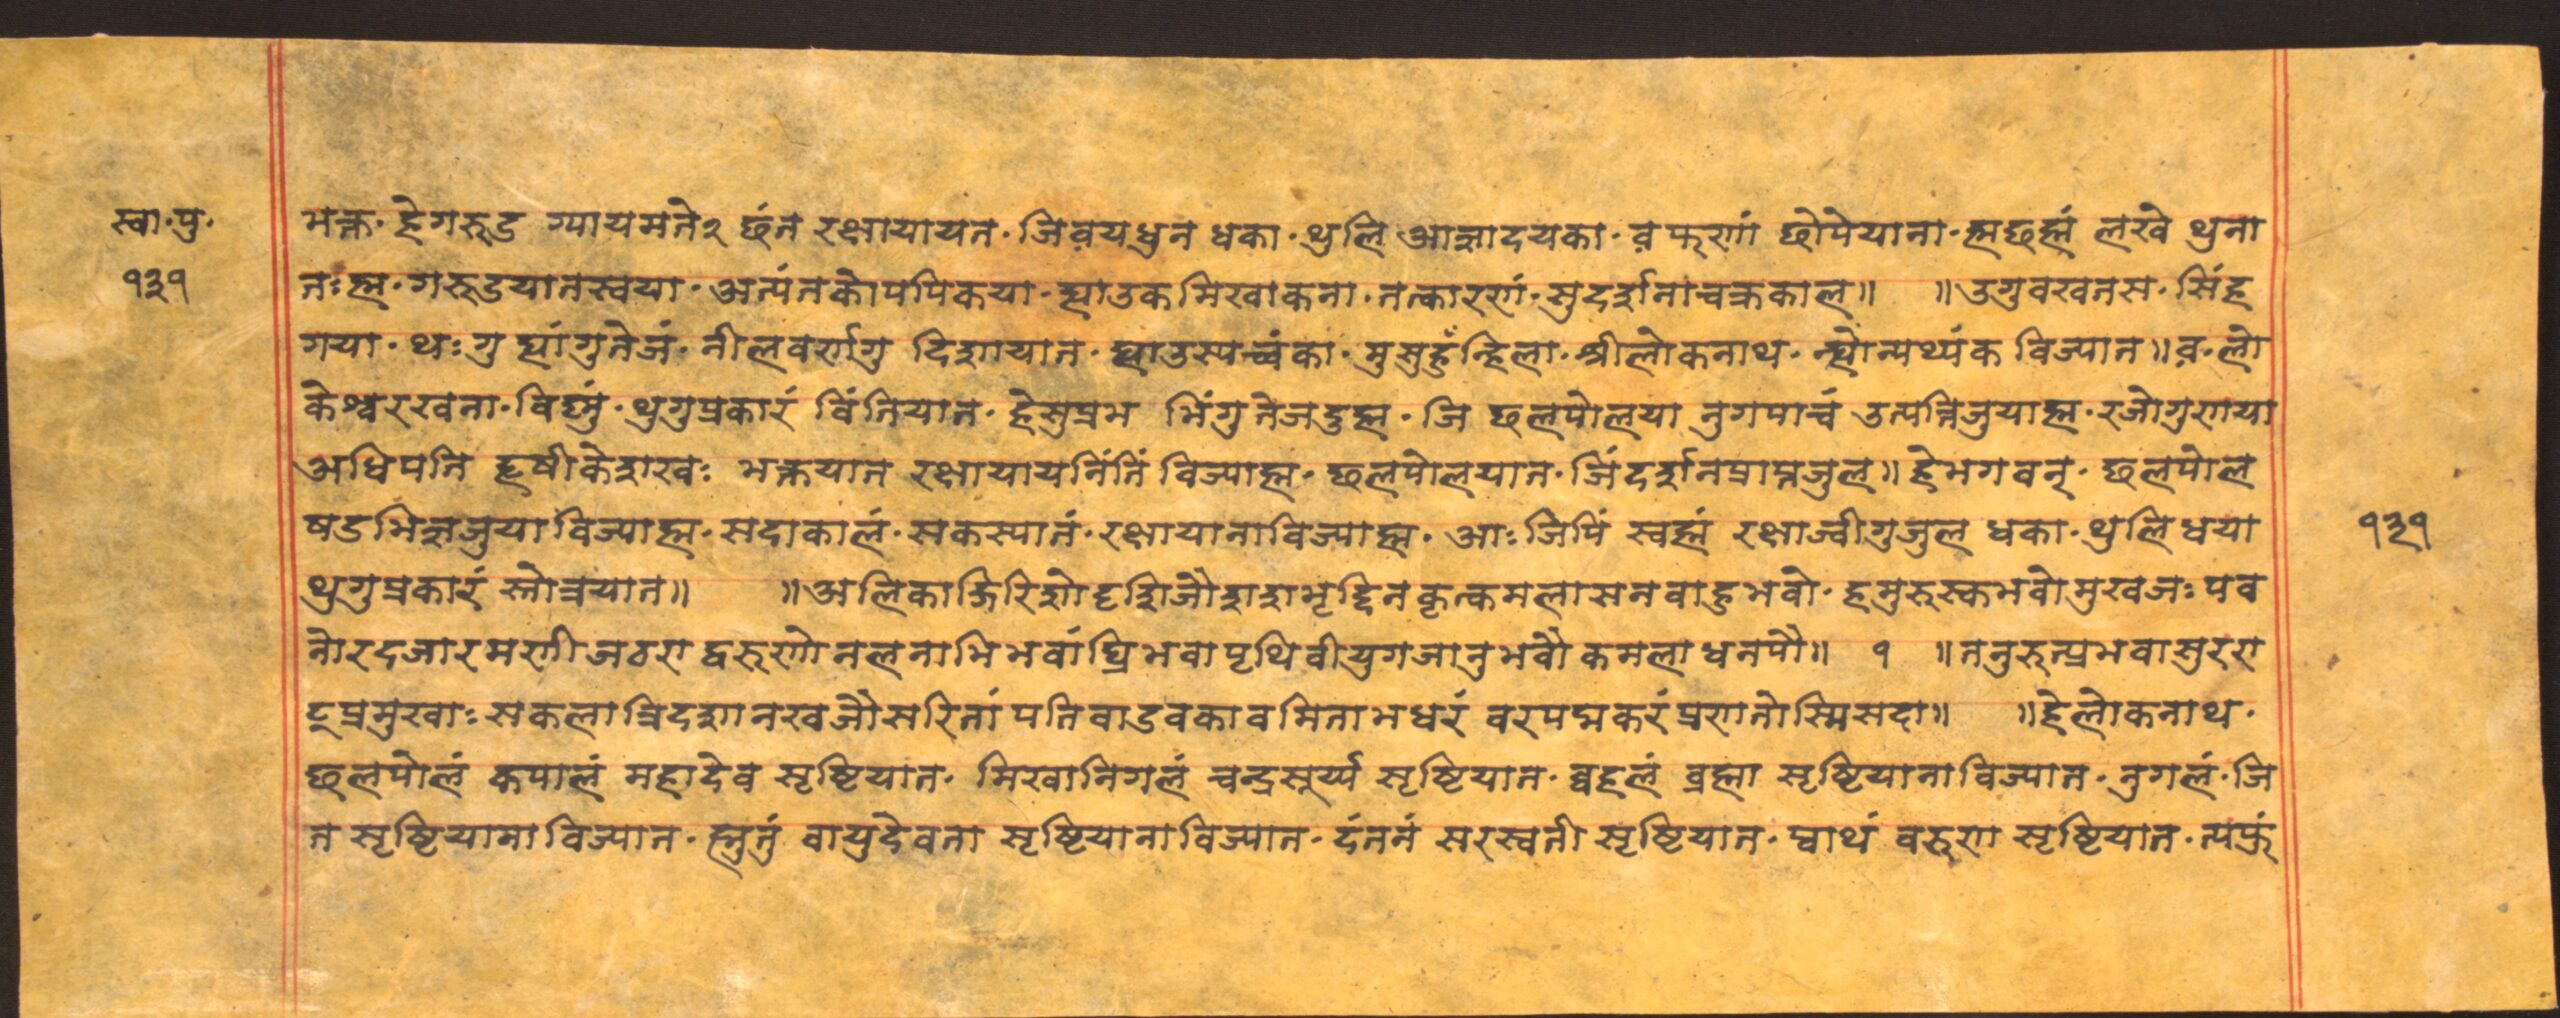 स्वा॰पु॰
१३१
भक्त॰ हेगरुड ग्यायमते२ छंत रक्षायायत॰ जिवयधुन धका॰ थुलि आज्ञादयका॰ व्र फणां छोपेयाना॰ ह्मछह्मं लखे थुना
तःह्म॰ गरुडयातस्वया॰ अत्यंतकोपपिकया॰ ह्याउक मिखाकना॰ तत्कारणं॰ सुदर्शनाचक्रकाल॥ ॥उगुवखतस॰ सिंह
गया॰ थःगु ह्मांगुतेजं॰ नीलवर्णगु दिशायात॰ ह्याउस्यच्वंका॰ मुसुहुँन्हिला॰ श्रीलोकनाथ॰ न्ह्योन्यथ्यंक विज्यात॥व्र॰लो
केश्वरखना॰ विष्णुं॰ थुगुप्रकारं विंतियात॰ हेसुप्रभ भिंगुतेजदुह्म॰ जि छलपोलया नुगपाच्वं उत्पन्निजुयाह्म॰ रजोगुणया
अधिपति हृषीकेशखः भक्तयात रक्षायायनिंतिं विज्याह्म॰ छलपोलयात॰ जिंदर्शनप्राप्तजुल॥हेभगवन्॰ छलपोल
षडभिज्ञजुया विज्याह्म॰ सदाकालं॰ सकस्यातं॰ रक्षायानाविज्याह्म॰ आः जिपिं स्वह्मं रक्षाज्वीगुजुल धका॰ थुलिधया
१३१
थुगुप्रकारं स्तोत्रयात॥ ॥अलिकाज्गिरिशोदृशिजौशशभृद्दिनकृत्कमलासनवाहुभवो॰ हमुरुस्कभवोमुखजः पव
नोरदजारमणीजठरा द्वरुणोनलनाभिभवांघ्रिभवापृथिवीयुगजानुभवौकमलाधनपौ॥ १ ॥तनुरुत्प्रभवासुररा
ट्प्रमुखाः सकलात्रिदशानखजौसरितां पतिवाडवकावमिताभधरं वरपद्मकरं प्रणतोस्मिसदा॥ ॥हेलोकनाथ॰
छलपोलं कपालं महादेव सृष्टियात॰ मिखानिगलं चन्द्रसूर्य्य सृष्टियात॰ व्वहलं व्रह्मा सृष्टियानाविज्यात॰ नुगलं॰ जि
त सृष्टियानाविज्यात॰ ह्मुतुं वायुदेवता सृष्टियानाविज्यात॰ दंतनं सरस्वती सृष्टियात॰ प्वाथं वरुण सृष्टियात॰ त्यफुं